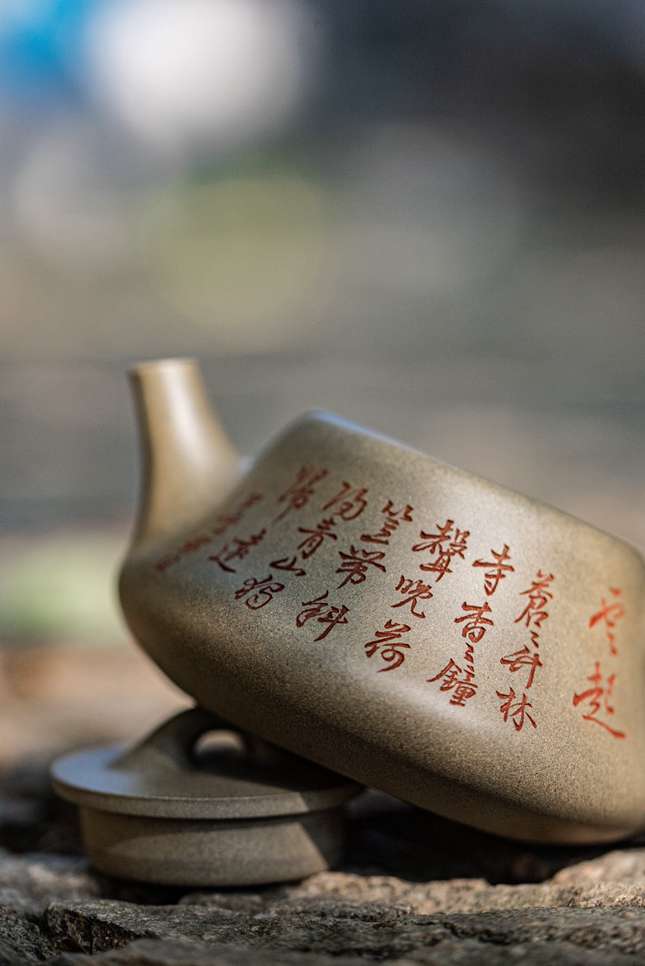 云起
蒼〻竹林
寺杳〻鐘
聲晚荷
笠帶斜
陽青山獨
歸遠